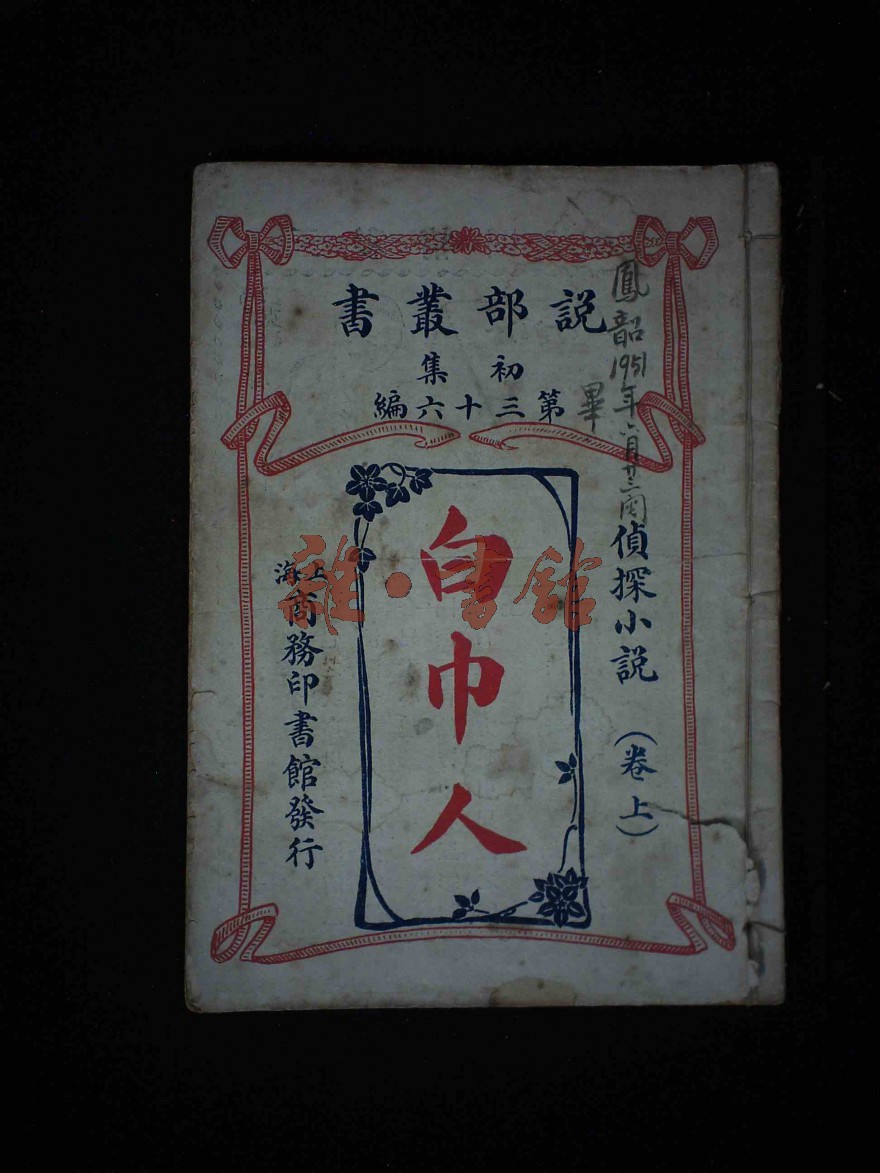 説部叢書
初集
第三十六編
鳳韶1951年六月廿三閱
畢
偵探小説（卷上）
白巾人
上海商務印書館發行
雜·書館